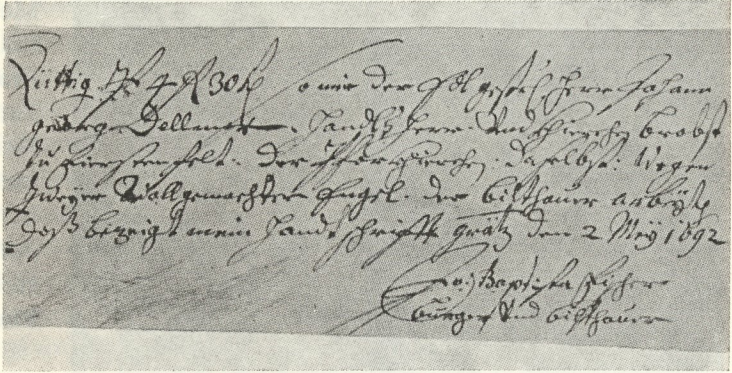 Quittig P. 4 fl 30 kr so mir der Edl gestr. Herr Johann
georg Dellmor Handlsherr und Khirchen brobst
zu Fierstenfelt. der Pfarr Khierchen daselbst: Wegen
Zweyer Wollgemachten Engel der bilthauer arbeyt
Daß bezeigt mein Handtschrifft grätz den 2 Meÿ 1692
Baptista Fischer
burger und bilthauer